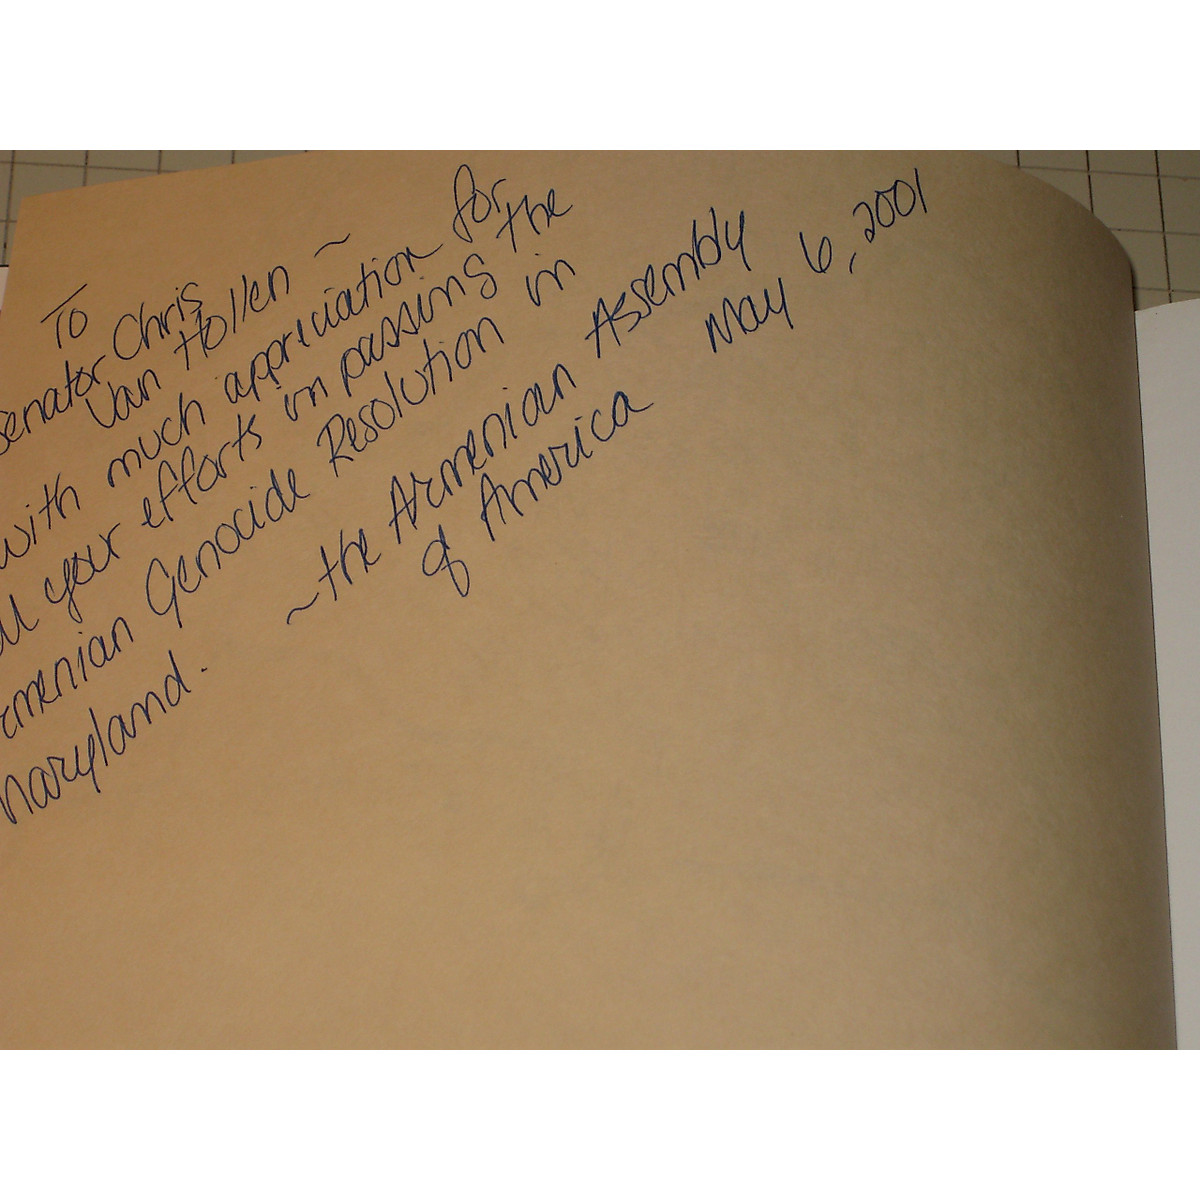 To
Senator Chris
Van Hollen ~
with much appreciation for
all your efforts in passing the
Armenian Genocide Resolution in
Maryland.
~ the Armenian Assembly
of America
May 6, 2001